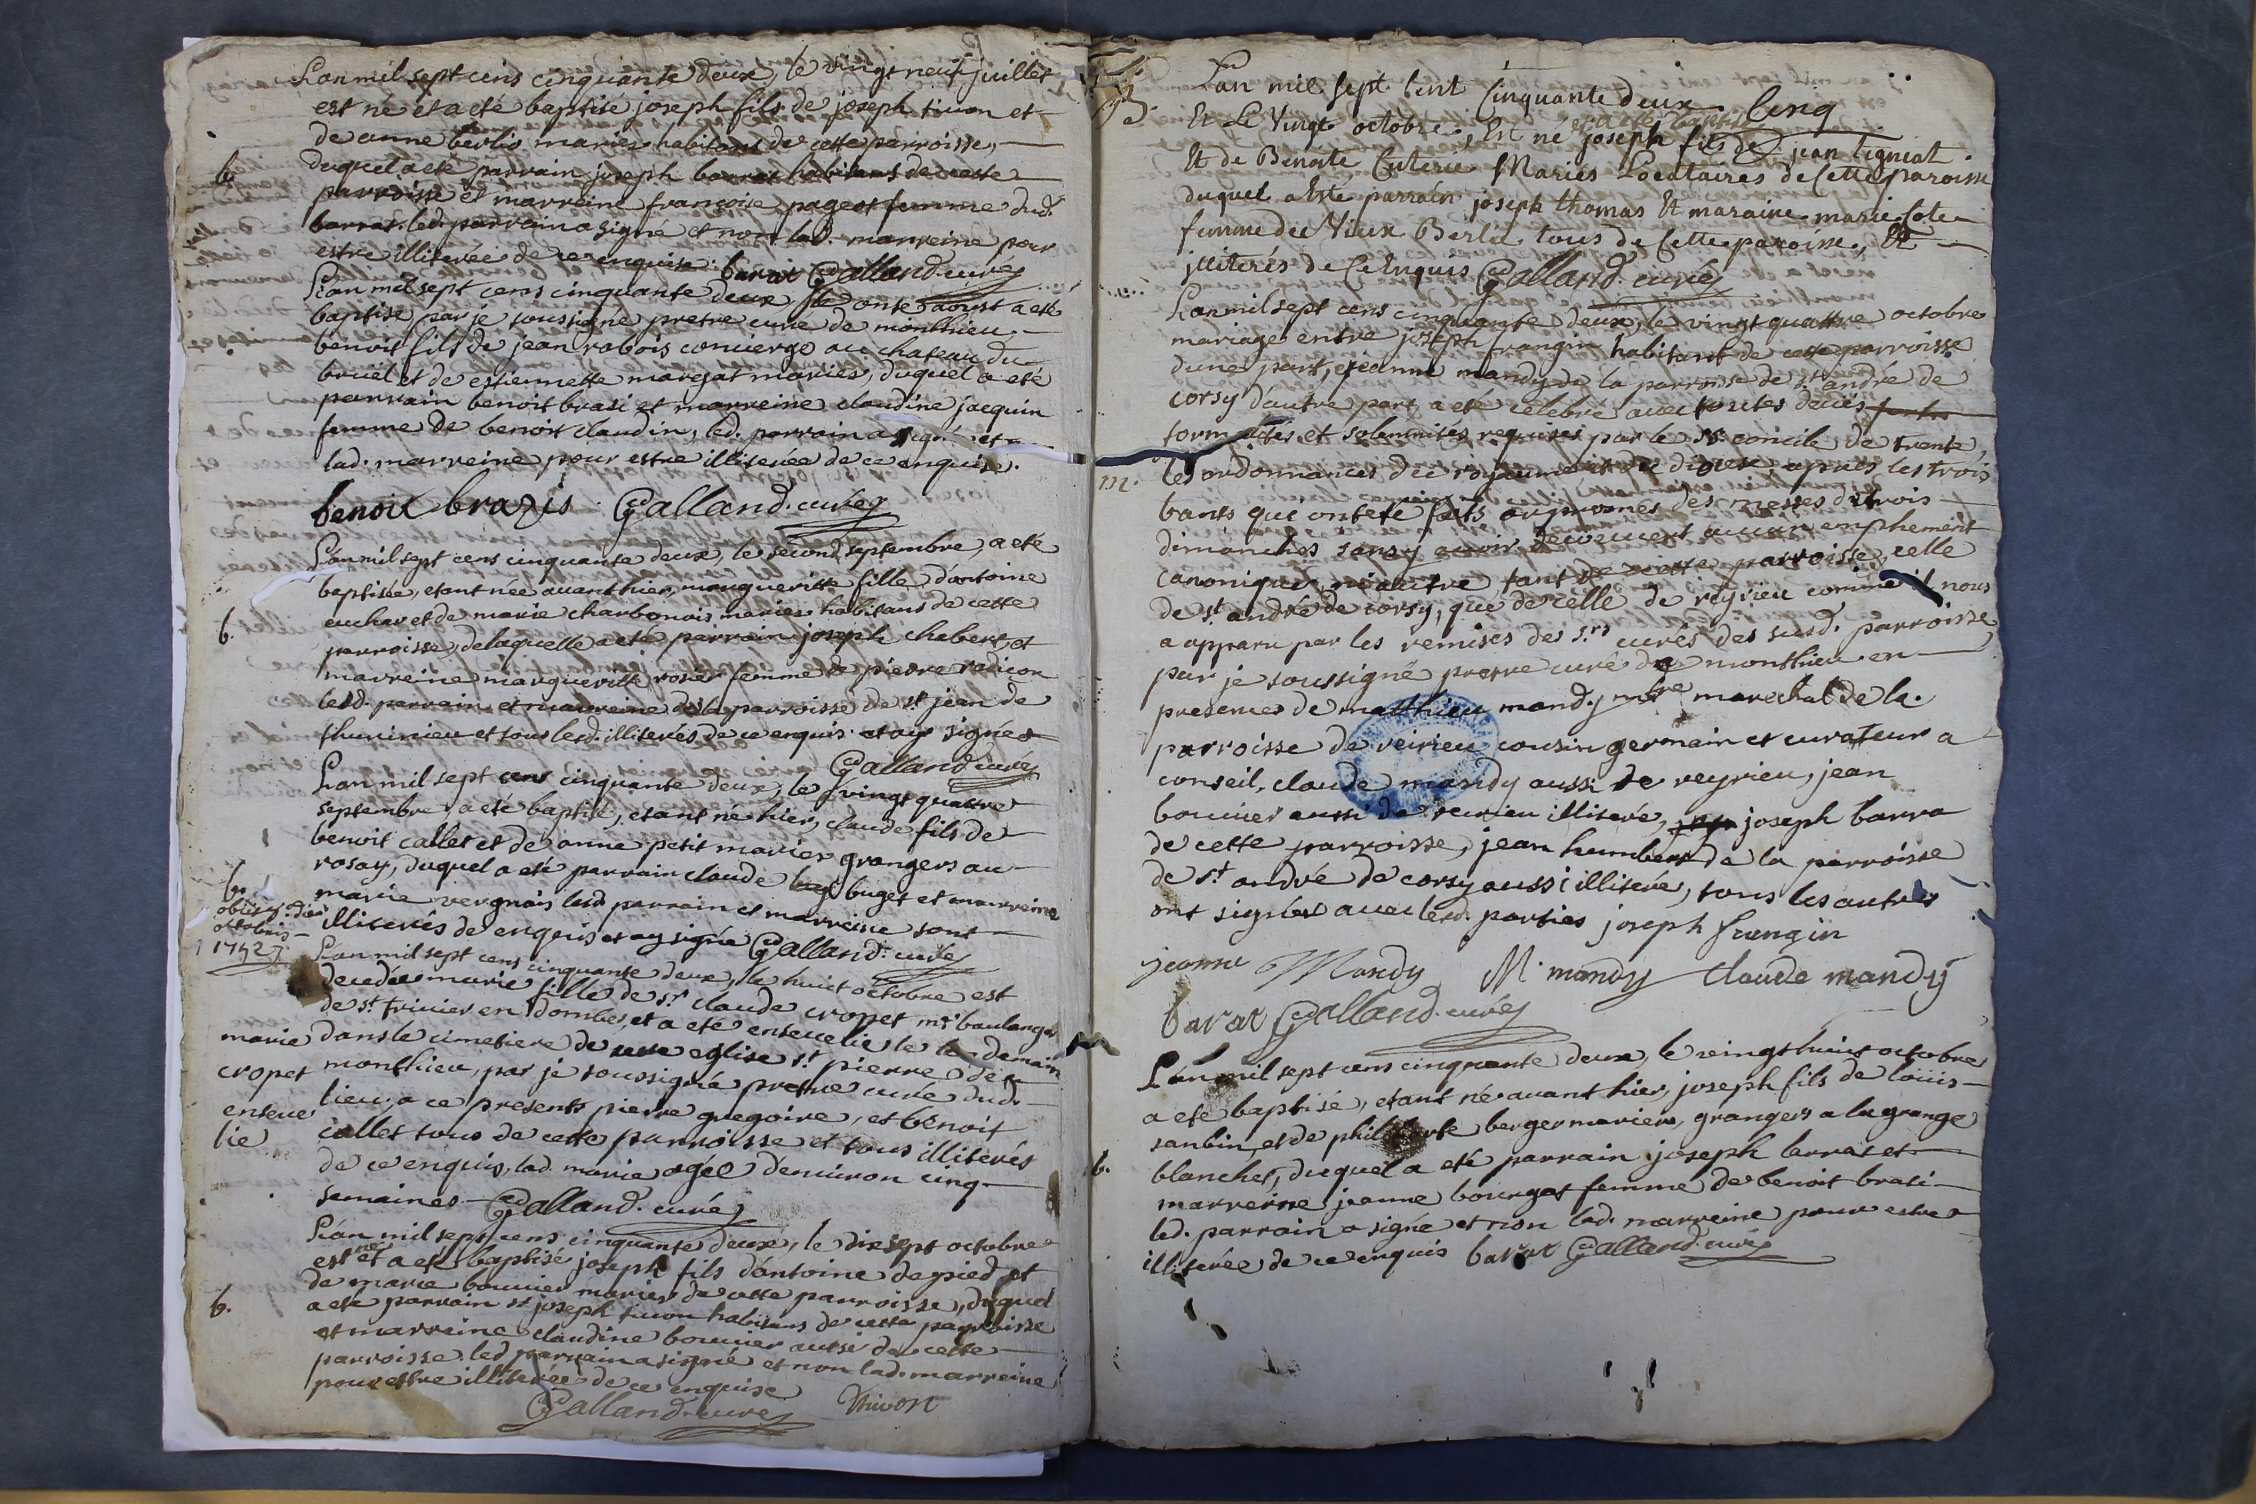 L'an mil sept cens cinquante deux, le vingt neuf juillet
est né et a eté baptisé joseph fils de joseph tivon et
de anne berlio mariés habitans de cette parroisse,
b. duquel a eté parrain joseph barrat habitant de cette
parroisse et marreine françoise pageot femme dud.
barrat. led. parrain a signé et non lad. marreine pour
estre illiterée de ce enquise. barat Galland. curé
L'an mil sept cens cinquante deux, le onze aoust a eté
baptisé par je soussigné pretre curé de monthieu
benoit fils de jean rabois concierge au chateau du
breüil et de estiennette margat mariés, duquel a eté
parrain benoit brasi et marreine claudine jacquin
femme de benoit claudin, led. parrain a signé et
lad. marreine pour estre illiterée de ce enquise.
benoit brazis Galland. curé
L'an mil sept cens cinquante deux, le second septembre, a eté
baptisée, etant née avant hier, margueritte fille d'antoine
b. cuchar et de marie charbonois mariés habitans de cette
parroisse, de laquelle a eté parrain joseph chabert, et
marreine margueritte rosier femme de pierre radicon
lesd. parrain et marreine de la parroisse de st jean de
thurinieu et tous lesd. illiterés de ce enquis et ay signé
Galland curé
L'an mil sept cens cinquante deux, le vingt quattre
septembre a eté baptisé, etant né hier, claude fils de
benoit callet et de anne petit mariés grangers au
rosay, duquel a eté parrain claude buget et marreine
b. marie vergnais lesd parrain et marreine sont
illiterés de enquis et ay signé Galland. curé
obiit 8. die
octobris
1752
L'an mil sept cens cinquante deux, le huict octobre est
decedée marie fille de sr claude cropet mtre boulanger
de st trivier en dombes, et a eté ensevelie le lendemain
marie dans le cimetiere de cette eglise st pierre de
cropet monthieu, par je soussigné pretre curé dud.
enseve lieu. a ce presents pierre gregoire, et benoit
lie callet tous de cette parroisse et tous illiterés
de ce enquis, lad. marie agée d'environ cinq
semaines Galland. curé
L'an mil sept cens cinquante deux, le dix sept octobre
est né et a eté baptisé joseph fils d'antoine depied et
de marie bouvier mariés de cette parroisse, duquel
b. a eté parrain sr joseph tivon habitans de cette parroisse
et marreine claudine bouvier aussi de cette
parroisse led. parrain a signé et non lad. marreine
pour estre illiterée de ce enquise
Galland. curé Thivon
L'an mil sept Cent Cinquante deux Cinq
Et Le Vingt octobre, Est né et a eté baptisé joseph fils de jean Tigneat
Et de Benoite Cuterie Mariés Locataires de Cette paroisse
duquel a Este parrain joseph thomas Et maraine marie Cote
femme de Vieux Berlie tous de Cette paroisse, Et
illiterés de Ce Enquis Galland. curé
L'an mil sept cens cinquante deux, le vingt quattre octobre
mariage entre joseph frangin habitant de cette parroisse
d'une part, et jeanne mandy de la parroisse de st andré de
corsy d'autre part, a eté celebré avec toutes deües
formalités, et solemnités requises par le st concile de trente,
m. les ordonnances du royaume et du dioceze aprés les trois
bants qui ont eté faits aux prones des messes de trois
dimanches sans y avoir decouvert aucun emphement
canonique, ni autre, tant de cette parroisse, celle
de st andré de corsy, que de celle de reyrieu comme il nous
a apparu par les remises de srs curés des susd. parroisse
par je soussigné pretre curé de monthieu en
presences de matthieu mandy mtre marechal de la
parroisse de reirieu cousin germain et curateur a
conseil, claude mandy aussi de reyrieu, jean
bouvier aussi de reirieu illiteré, joseph barra
de cette parroisse, jean humbert de la parroisse
de st andré de corsy aussi illiteré, tous les autres
ont signés avec lesd. parties joseph frangin
jeanne Mandy M. mandy Claude mandy
barat Galland. curé
L'an mil sept cens cinquante deux, le vingt huict octobre
a eté baptisé, etant né avant hier, joseph fils de loüis
sanbin, et de berger mariés, grangers a la grange
b. blanches, duquel a eté parrain joseph barrat et
marreine jeanne bourgat femme de benoit brasi
led. parrain a signé et non lad. marreine pour estre
illiterée de ce enquis barat Galland. curé